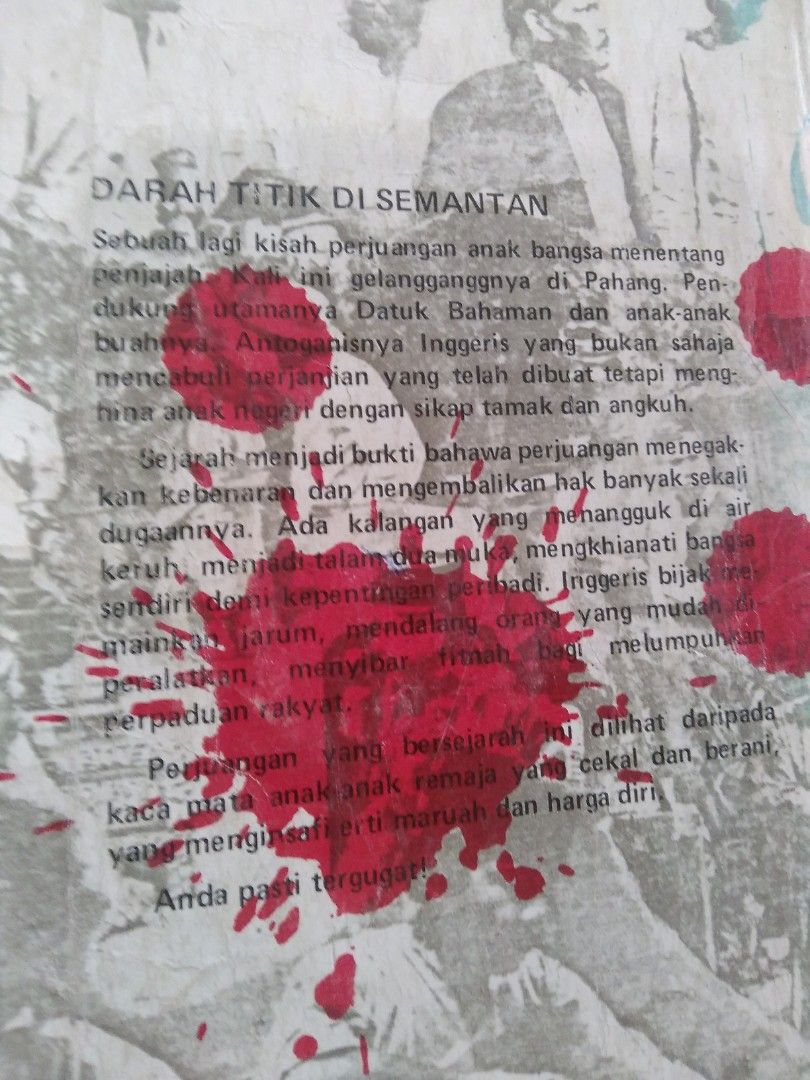 DARAH TITIK DI SEMANTAN
Sebuah lagi kisah perjuangan anak bangsa menentang
penjajah. Kali ini gelangganggnya di Pahang. Pen-
dukung utamanya Datuk Bahaman dan anak-anak
buahnya. Antoganisnya Inggeris yang bukan sahaja
mencabuli perjanjian yang telah dibuat tetapi meng-
hina anak negeri dengan sikap tamak dan angkuh.
Sejarah menjadi bukti bahawa perjuangan menegak-
kan kebenaran dan mengembalikan hak banyak sekali
dugaannya. Ada kalangan yang menangguk di air
keruh, menjadi talam dua muka, mengkhianati bangsa
sendiri demi kepentingan peribadi. Inggeris bijak me-
mainkan jarum, mendalang orang yang mudah di-
peralatkan, menyibar fitnah bagi melumpuhkan
perpaduan rakyat.
Perjuangan yang bersejarah ini dilihat daripada
kaca mata anak-anak remaja yang cekal dan berani,
yang menginsafi erti maruah dan harga diri.
Anda pasti tergugat!